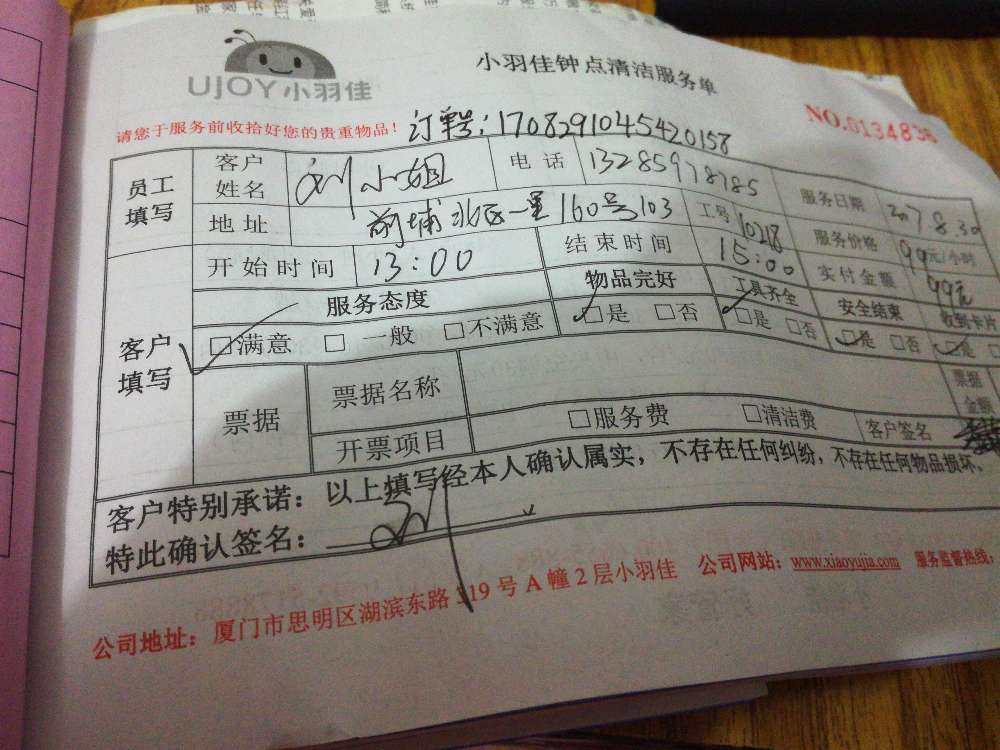 UJOY小羽佳
小羽佳钟点清洁服务单
NO.0134836
请您于服务前收拾好您的贵重物品! 订单号:1708291045420158
员工填写 客户姓名 刘小姐 电话 13285978785 服务日期 2017 8.30
地址 前埔北区一里160号103 工号 10218 服务价格 99元/小时
客户填写 开始时间 13:00 结束时间 15:00 实付金额 99元
服务态度 物品完好 工具齐全 安全结束 收到卡片
□满意 □ 一般 □不满意 □是 □否 □是 □否 □是 □否 □是
票据 票据名称 票据金额
开票项目 □服务费 □清洁费 客户签名
客户特别承诺:以上填写经本人确认属实,不存在任何纠纷,不存在任何物品损坏。
特此确认签名: 刘
公司地址:厦门市思明区湖滨东路319号A幢2层小羽佳 公司网站:www.xiaoyujia.com 服务监督热线: